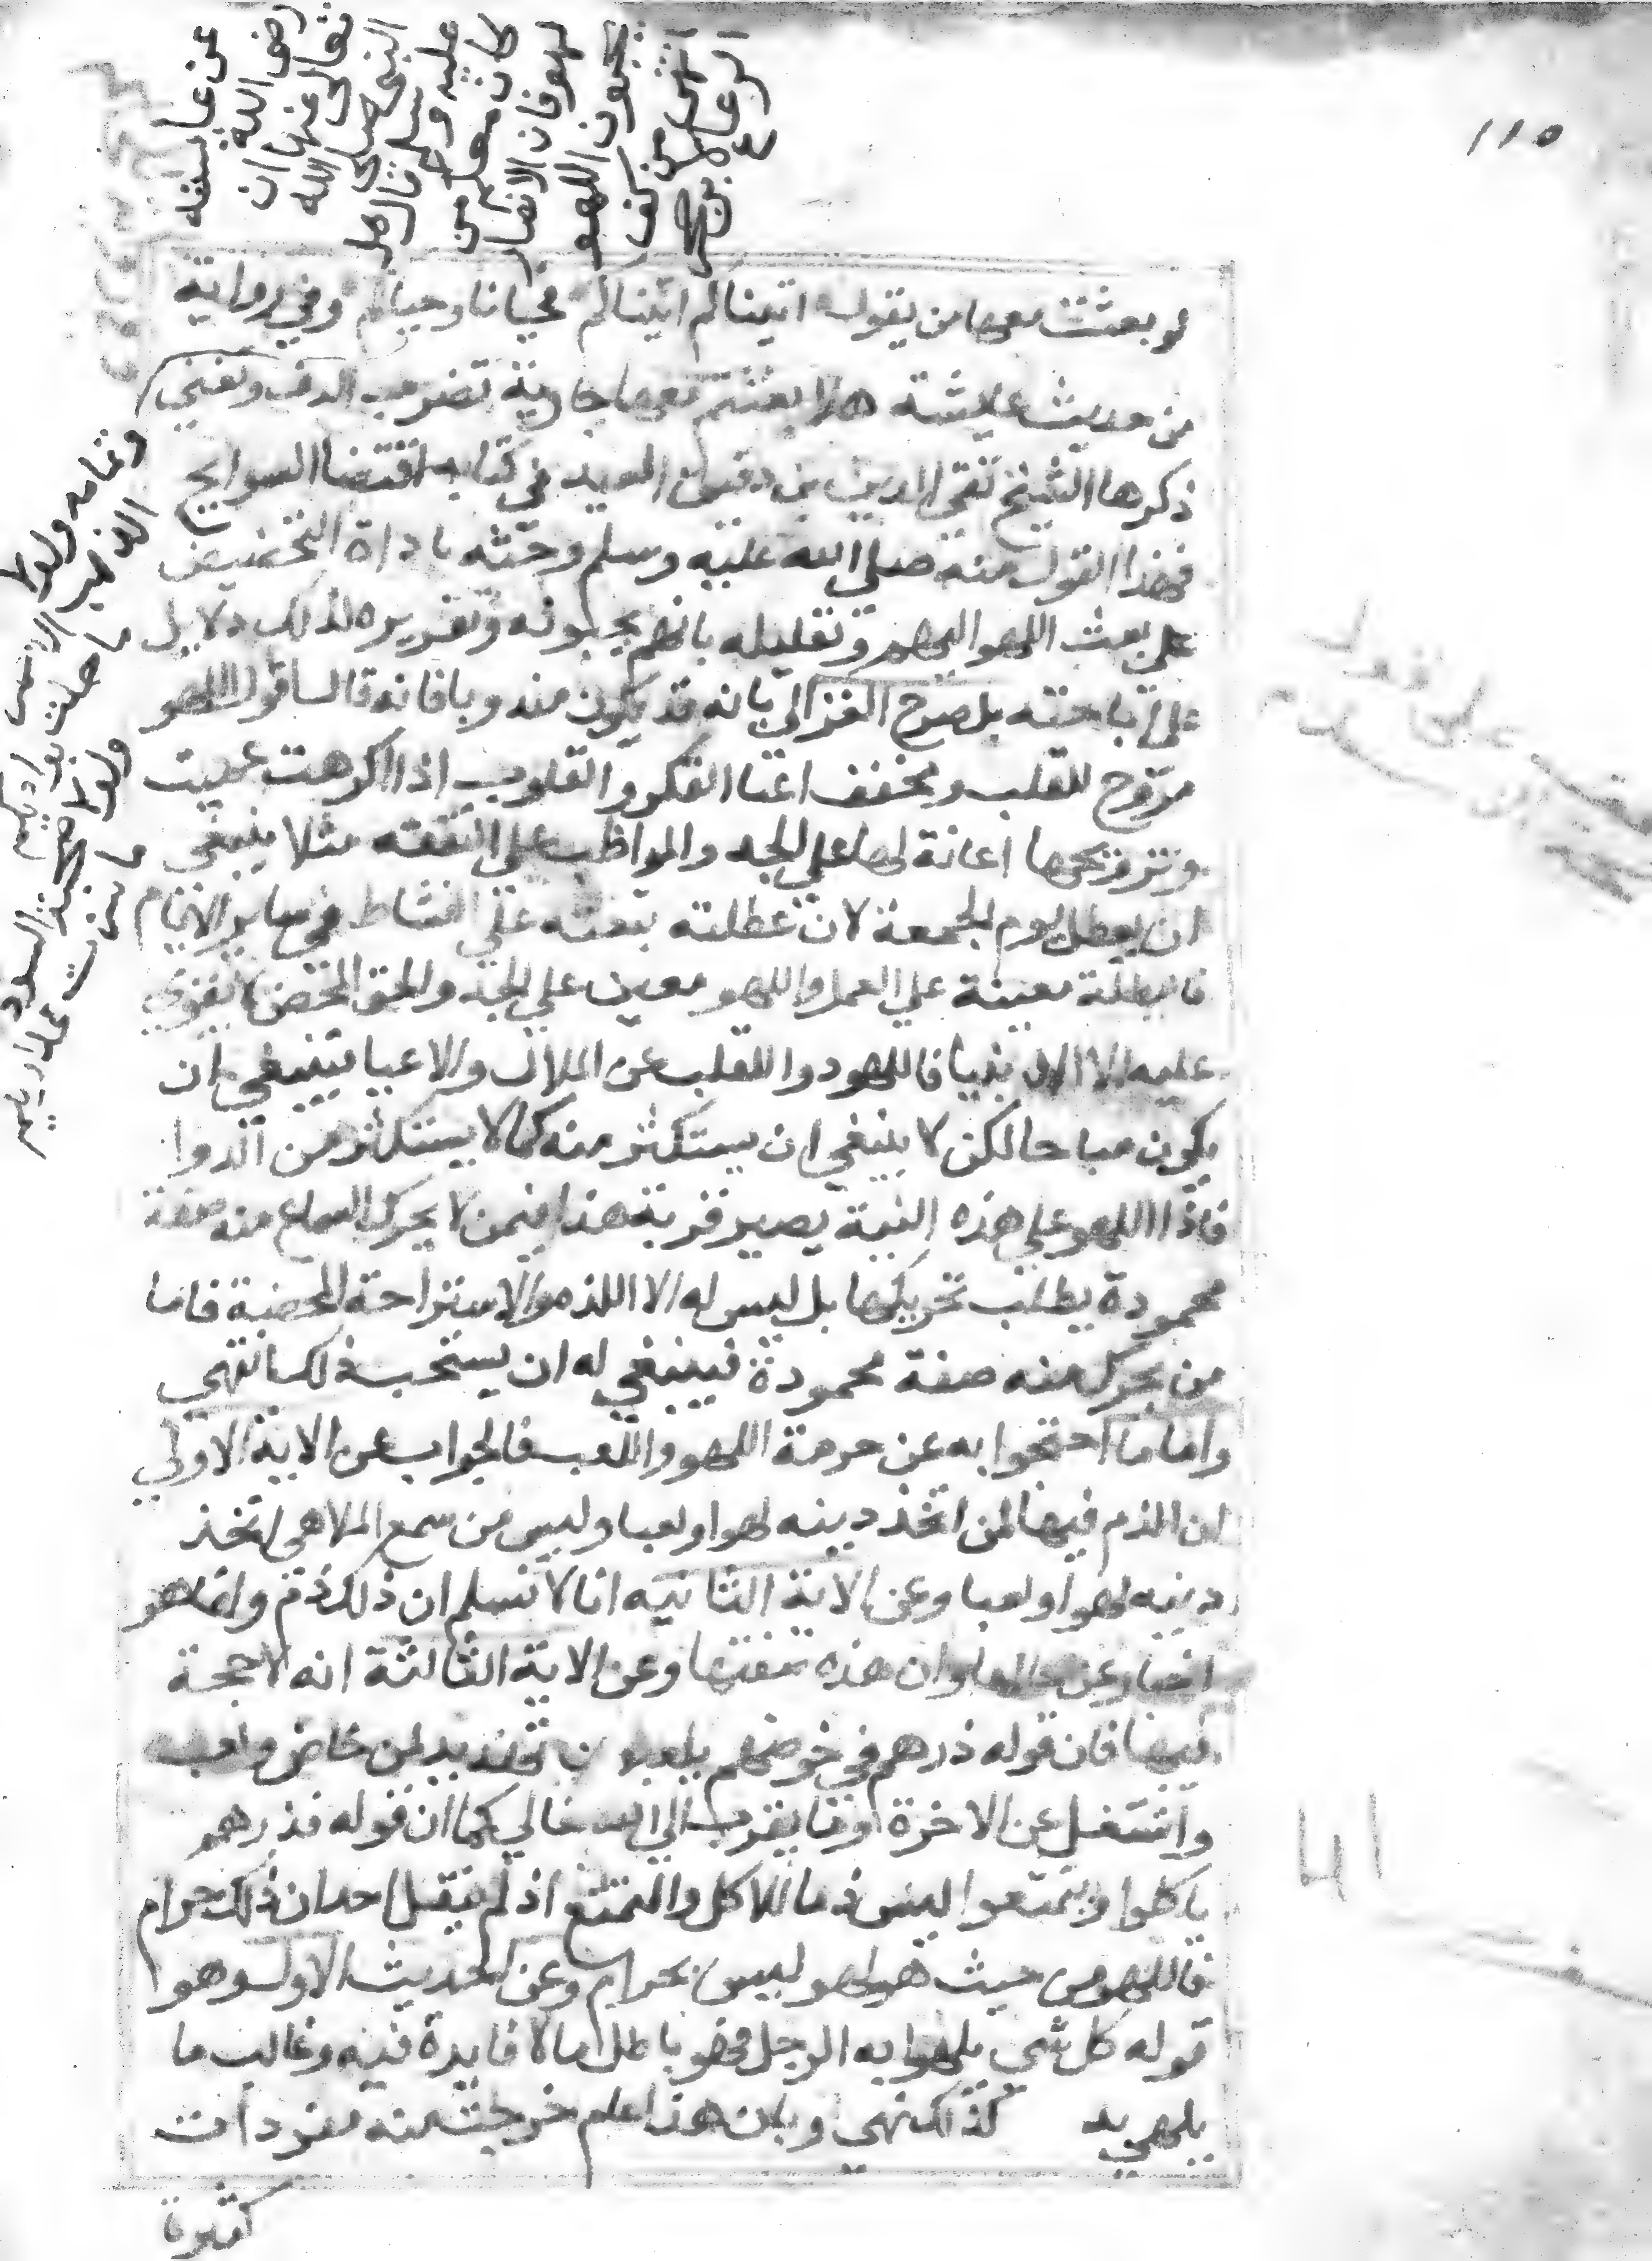 ١١٥
عن عايشه
رضي الله
تعالى عنها ان
النبي صلى الله
عليه وسلم قال هل
كان معكم من
لهو فان الانصار
يحبون اللهو
لو بعثت معها من يقول اتيناكم اتيناكم فحيانا وحياكم وفي رواية
من حديث عايشة هلا بعثتم معها جارية تضرب الدف وتغني
ذكرها الشيخ تقي الدين بن دقيق العيد في كتابه اقتضا السوايح
فهذا القول منه صلى الله عليه وسلم وحثه باداة التحضيض
على بعث اللهو اليهم وتعليله بانهم يحبونه وتقريره لذلك دلايل
على اباحته بل صرح الغزالي بانه قد يكون مندوبا فانه قال اللهو
مروح للقلب ومخفف اعنا الفكر والقلوب اذا اكرهت عميت
وترويحها اعانة لها على الجد والمواظب على التفقه مثلا ينبغي
ان يعطل يوم الجمعة لان عطلته تبعثه على النشاط في ساير الايام
فالعطلة معينة على العمل واللهو معين على الجد والحق المحض لا يقوى
عليه الا الانبيا فاللهو دوا للقلب عن الملال والاعيا فينبغي ان
يكون مباحا لكن لا ينبغي ان يستكثر منه كما لا يستكثر من الدوا
فاذا اللهو على هذه النية يصير قربة هذا فيمن لا يحرك السماع منه صفة
محمودة يطلب تحريكها بل ليس له الا اللذه والاستراحة المحضة فاما
من يحرك منه صفة محمودة فينبغي له ان يستحب ذلك انتهى
واما ما احتجوا به عن حرمة اللهو واللعب فالجواب عن الاية الاولى
ان الذم فيها لمن اتخذ دينه لهوا ولعبا وليس من سمع الملاهي اتخذ
دينه لهوا ولعبا وعن الاية الثانيه انا لا نسلم ان ذلك ذم وانما هو
اخبار عن حالها وان هذه صفتها وعن الاية الثالثة انه لا حجة
فيها فان قوله ذرهم في خوضهم يلعبون تهديد لمن خاض ولعب
واشتغل عن الاخرة وما يقرب الى الله تعالى كما ان قوله فذرهم
ياكلوا ويتمتعوا ليس ذما للاكل والتمتع اذ لم يقل احد ان ذلك حرام
فاللهو من حيث هو لهو ليس بحرام وعن الحديث الاول وهو
قوله كل شي يلهوا به الرجل فهو باطل ما لا فايدة فيه وغالب ما
يلهي به كذلك انتهى وبان هذا علم خرجت منه مفردات
كثيرة
وتمامه ولولا
الذهب الاحمر
ما حلت بواديكم
ولولا الحنطة السمرا
ما سمنت عذاريكم